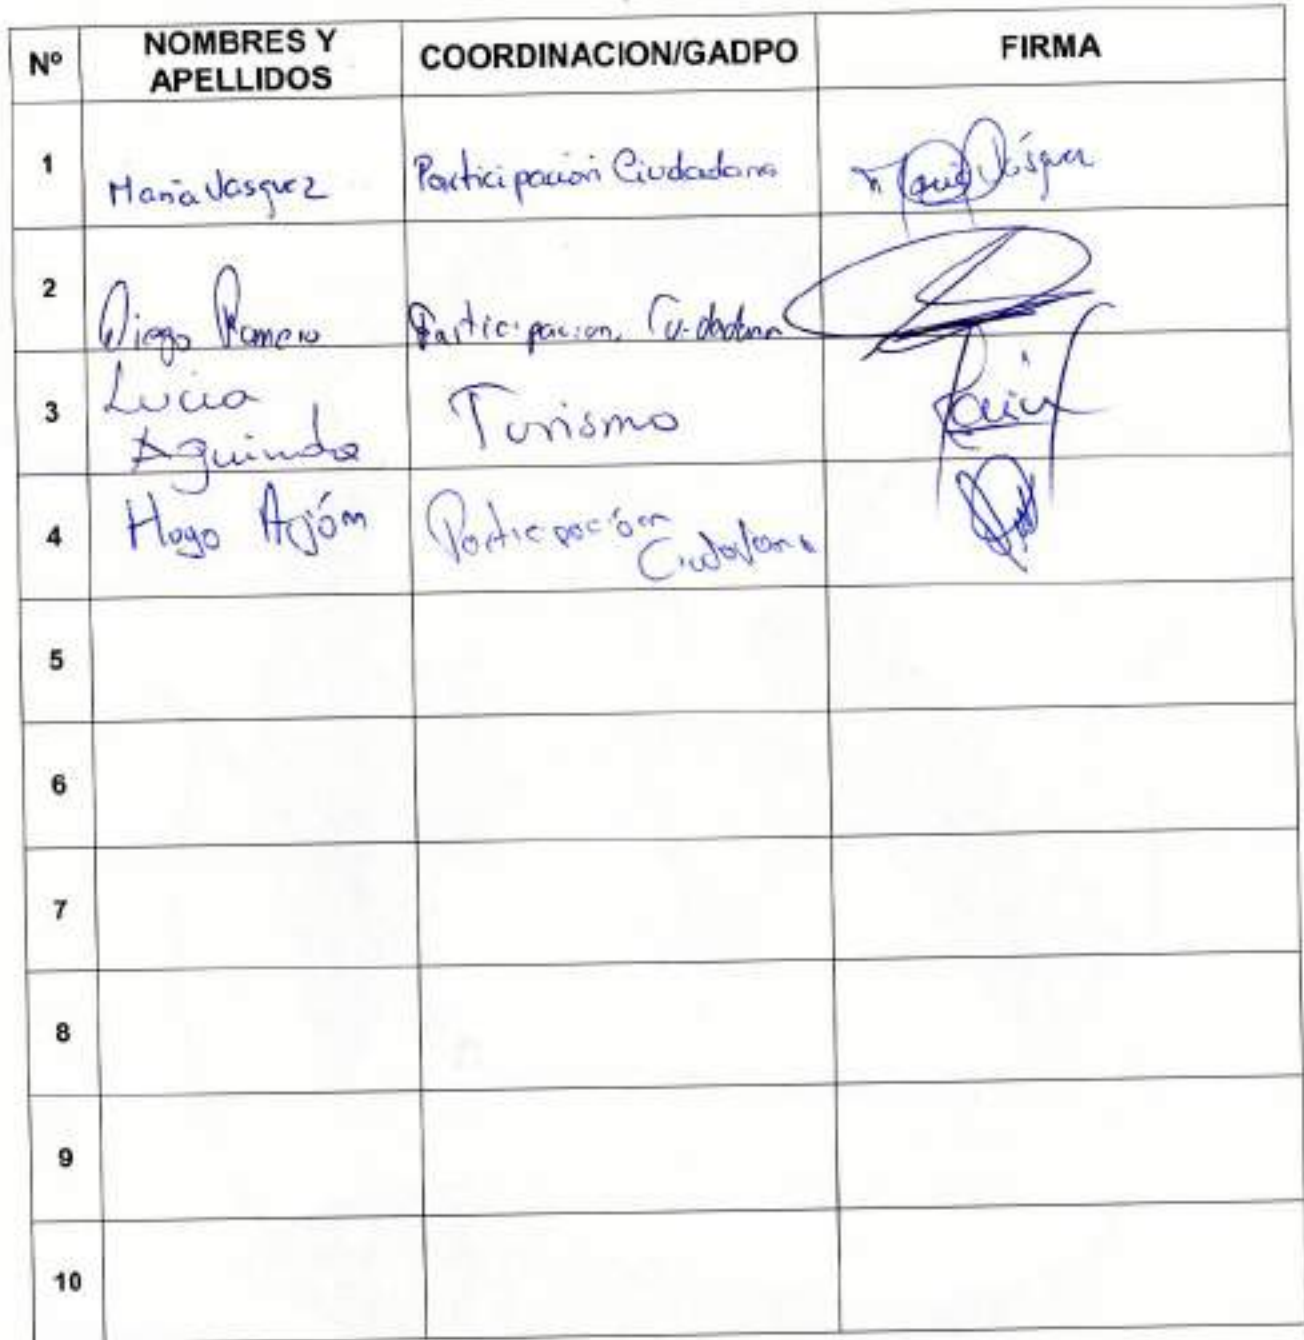 Nº NOMBRES Y APELLIDOS COORDINACION/GADPO FIRMA
1 Maria Vasquez Participación Ciudadana Maria Vásquez
2 Diego Romero Participacion Ciudadana
3 Lucia Aguinda Turismo
4 Hugo Participación Ciudadana
5
6
7
8
9
10